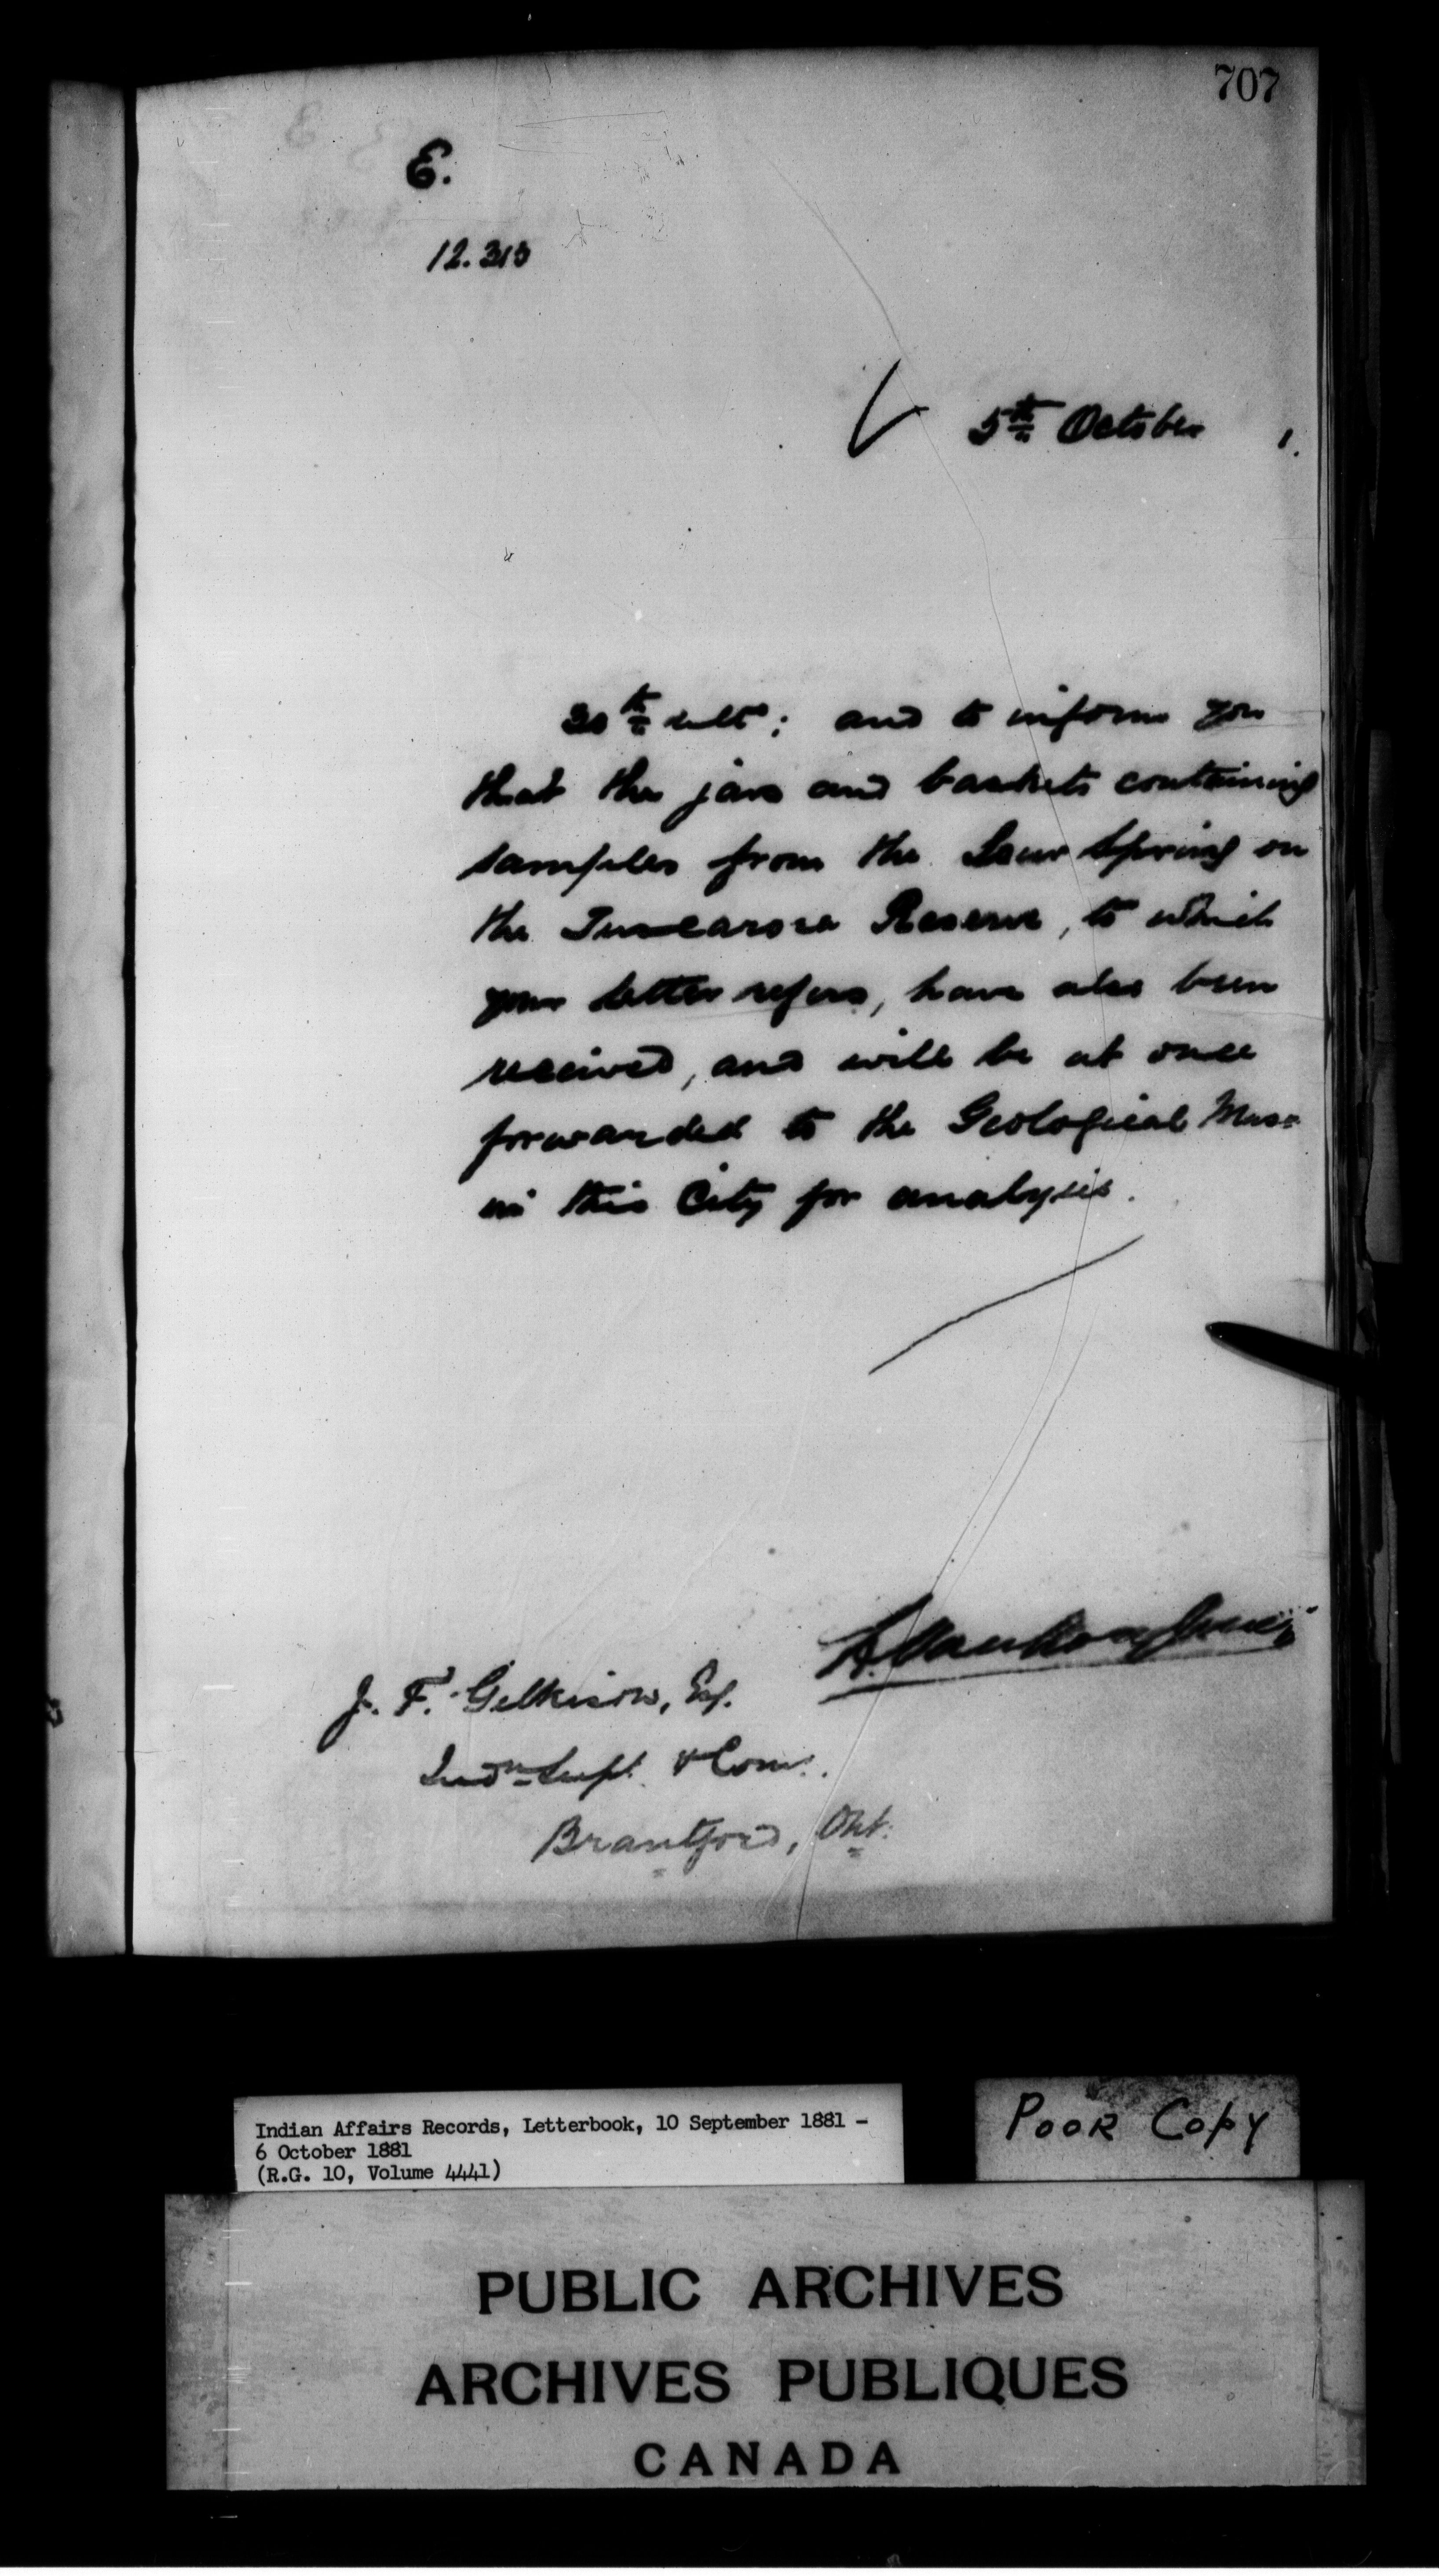 707
E.
12.315
5th October 1.
30th ulto; and to inform you
that the jars and baskets containing
samples from the Sour Spring on
the Tuscarora Reserve, to which
your letter refers, have also been
received, and will be at once
forwarded to the Geological Mus=
in this City for analysis.
J. F. Gilkison, Esq.
Indn Supt. & Com.
Brantford, Ont.
Indian Affairs Records, Letterbook, 10 September 1881 –
6 October 1881
(R.G. 10, Volume 4441)
POOR COPY
PUBLIC ARCHIVES
ARCHIVES PUBLIQUES
CANADA